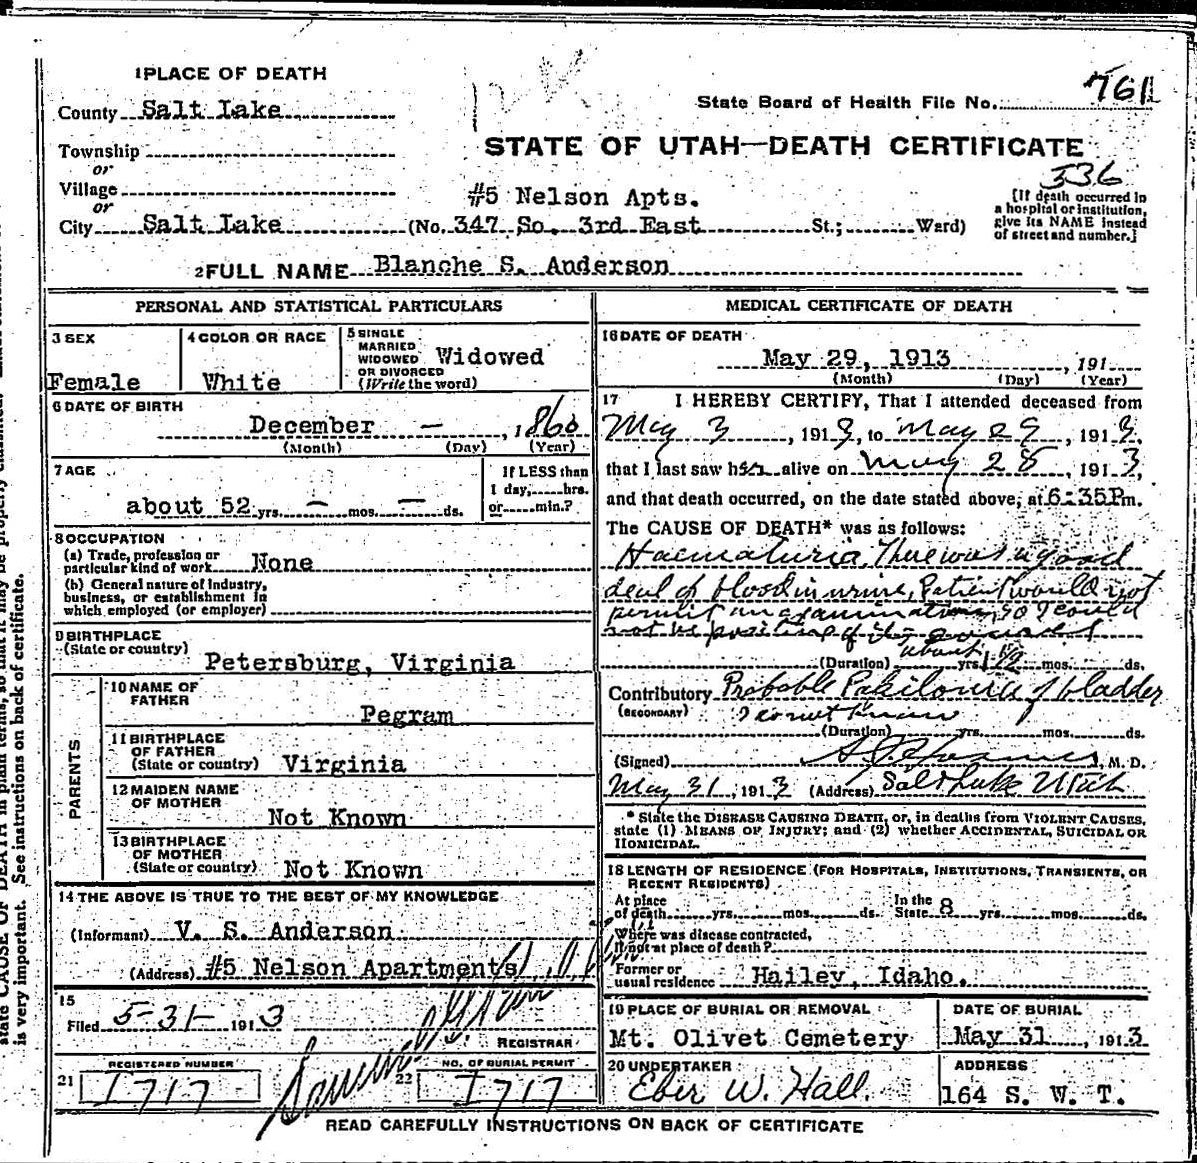 1 PLACE OF DEATH
County Salt Lake
Township
or
Village
or
City Salt Lake
State Board of Health File No. 761
STATE OF UTAH—DEATH CERTIFICATE
336
#5 Nelson Apts.
(No. 347 So. 3rd East St.; Ward)
[If death occurred in
a hospital or institution,
give its NAME instead
of street and number.]
2 FULL NAME Blanche S. Anderson
PERSONAL AND STATISTICAL PARTICULARS
3 SEX
Female
4 COLOR OR RACE
White
5 SINGLE
MARRIED
WIDOWED
OR DIVORCED
(Write the word)
Widowed
6 DATE OF BIRTH
December — , 1860
(Month) (Day) (Year)
7 AGE
about 52 yrs. — mos. — ds.
If LESS than
1 day, hrs.
or min.?
8 OCCUPATION
(a) Trade, profession or
particular kind of work None
(b) General nature of Industry,
business, or establishment in
which employed (or employer)
9 BIRTHPLACE
(State or country)
Petersburg, Virginia
PARENTS
10 NAME OF
FATHER
Pegram
11 BIRTHPLACE
OF FATHER
(State or country) Virginia
12 MAIDEN NAME
OF MOTHER
Not Known
13 BIRTHPLACE
OF MOTHER
(State or country) Not Known
14 THE ABOVE IS TRUE TO THE BEST OF MY KNOWLEDGE
(Informant) V. S. Anderson
(Address) #5 Nelson Apartments
15
Filed 5-31- 1913
REGISTRAR
21 REGISTERED NUMBER
1717
22 NO. OF BURIAL PERMIT
1717
MEDICAL CERTIFICATE OF DEATH
16 DATE OF DEATH
May 29, 1913 , 191
(Month) (Day) (Year)
17 I HEREBY CERTIFY, That I attended deceased from
May 3 , 1913, to May 29 , 1913,
that I last saw her alive on May 28 , 1913,
and that death occurred, on the date stated above, at 6-35 P m.
The CAUSE OF DEATH* was as follows:
Haematuria. There was a good
deal of blood in urine. Patient would not
permit an examination, so I could
not be positive of
about
(Duration) yrs. mos. ds.
Contributory Probable of bladder
(SECONDARY) I cannot know
(Duration) yrs. mos. ds.
(Signed) , M. D.
May 31, 1913 (Address) Salt Lake Utah
* State the DISEASE CAUSING DEATH, or, in deaths from VIOLENT CAUSES,
state (1) MEANS OF INJURY; and (2) whether ACCIDENTAL, SUICIDAL OR
HOMICIDAL.
18 LENGTH OF RESIDENCE (FOR HOSPITALS, INSTITUTIONS, TRANSIENTS, OR
RECENT RESIDENTS)
At place
of death yrs. mos. ds.
In the
State 8 yrs. mos. ds.
Where was disease contracted,
If not at place of death?
Former or
usual residence Hailey, Idaho.
19 PLACE OF BURIAL OR REMOVAL
Mt. Olivet Cemetery
DATE OF BURIAL
May 31 , 1913
20 UNDERTAKER
Eber W. Hall
ADDRESS
164 S. W. T.
READ CAREFULLY INSTRUCTIONS ON BACK OF CERTIFICATE
state CAUSE OF DEATH in plain terms, so that it may be properly
is very important. See instructions on back of certificate.